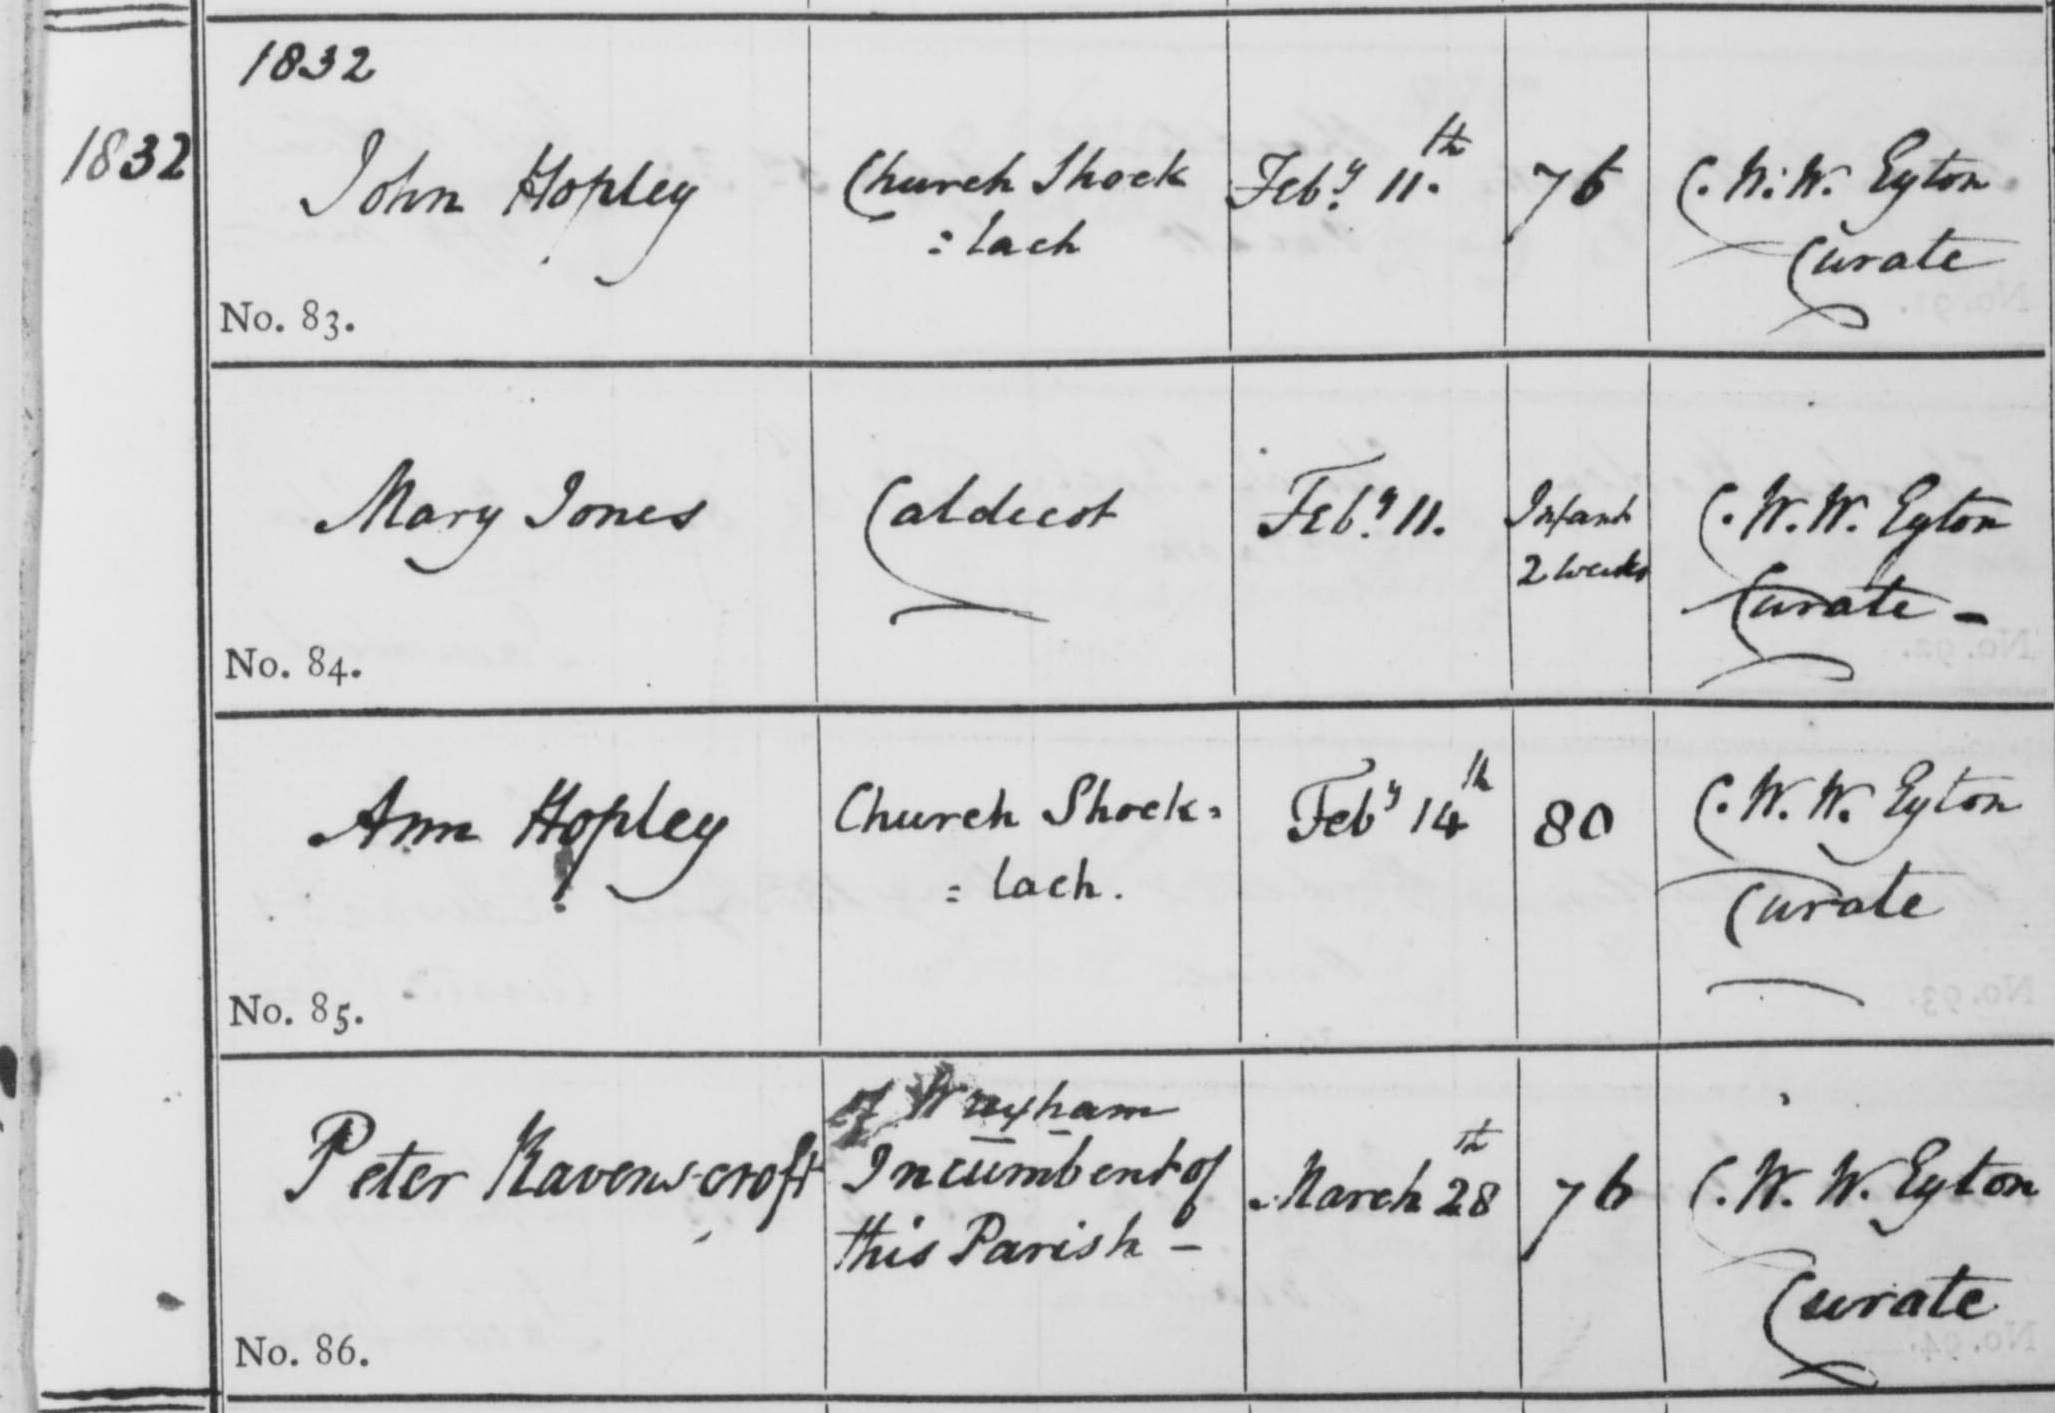 1832
1832
John Hopley
Church Shock
=lach
Feby 11.th
76
C. W. W. Eyton
Curate
No. 83.
Mary Jones
Caldecot
Feby 11.
Infant
2 weeks
C. W. W. Eyton
Curate -
No. 84.
Ann Hopley
Church Shock=
=lach.
Feby 14th
80
C. W. W. Eyton
Curate
No. 85.
Peter Ravenscroft
of Wrexham
Incumbent of
this Parish -
March 28th
76
C. W. W. Eyton
Curate
No. 86.